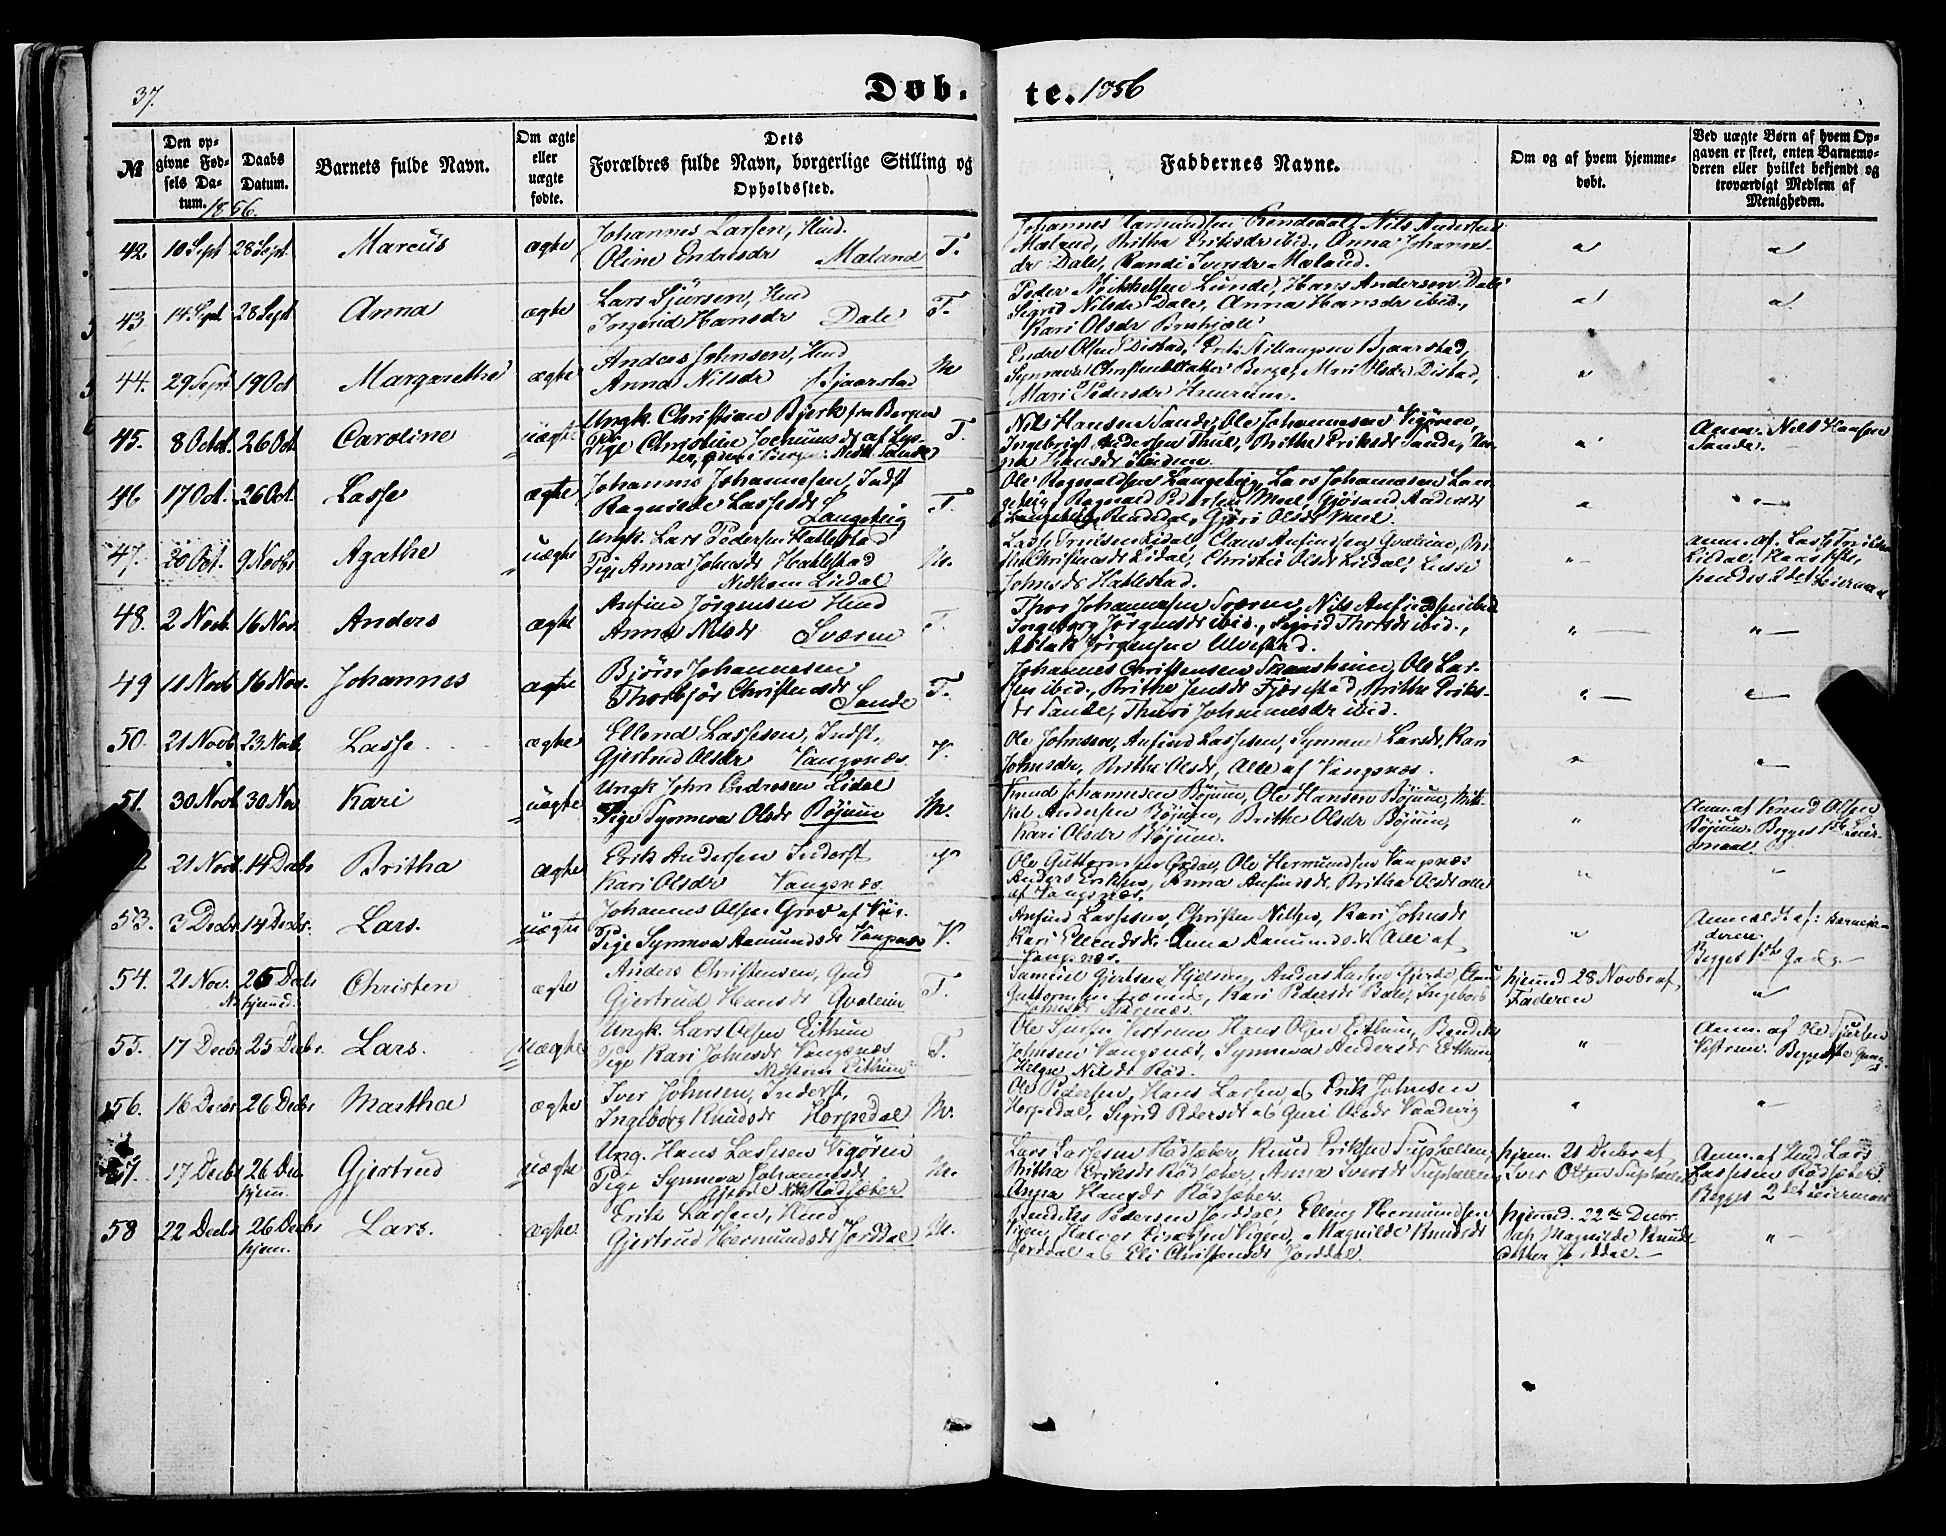 37.
Døb.
te. 1856
№
Den op-
givne Fød-
sels Da-
tum. 1856.
Daabs
Datum.
Barnets fulde Navn.
Om ægte
eller
uægte
fødte.
Dets
Forældres fulde Navn, borgerlige Stilling og
Opholdssted.
Faddernes Navne.
Om og af hvem hjemme-
døbt.
Ved uægte Børn af hvem Op-
gaven er skeet, enten Barnemo-
deren eller hvilket bekjendt og
troværdigt Medlem af
Menigheden.
42 10 Sept 28 Sept. Marcus ægte
Johannes Larsen, Huud.
Oline Endresdr Mæland T.
Mæland, Britha Eriksdr ibid., Anna Johanns-
dr Dale, Randi Iversdr Mæland.
43 14 Sept 28 Sept Anna ægte
Lars Sjursen, Huud
Ingerid Hansdr Dale T.
Peder Mikkelsen Lunde, Hans Andersen Dale
Sigrid Nilsdr Dale, Anna Hansdr ibid.,
Kari Olsdr
44. 29 Sept 19 Oct Margarethe ægte
Anders Johnsen, Huud
Anna Nilsdr Bjaarstad M
Endre Olsen Distad, Bjaarstad,
Berge, Mari Olsdr Distad,
Mari Pedersdr
45. 8 Octob. 26 Oct Caroline uægte
Ungk. Christian Bjerk fra Bergen
Pige Christine Jochumsdr af Lys-
ter, Sande T.
Nils Hansen Sande, Ole Johannesen Vigøren,
Ingebrigt Pedersen Thue, Brithe Eriksdr Sande,
Hansdr
Anm. Nils Hansen
Sande.
46 17 Oct. 26 Oct. Lasse ægte
Johannes Johannesen, Indst
Ragnilde Lassesdr
Langeteig T.
Ole Ragnvaldsen Langeteig, Lars Johannesen Lan-
geteig, Ragnvald Pedersen Meel, Gjørand Andersdr
Rendedal, Gjøri Olsdr Meel.
47. 20 Oct. 9 Novbr Agathe uægte
Ungk. Lars Pedersen Hatlestad
Pige Anna Johnsdr Hatlestad
Liedal M.
Lidal, Claus Anfindsen Qvalene, Bri-
the Christensdr Lidal, Christie Olsdr Lidal,
Johnsdr Hatlestad.
48. 2 Novb. 16 Nov. Anders ægte
Anfind Jørgensen Huud
Anna Nilsdr Sværen T.
Thor Johannesen Sværen, Nils Anfindsen ibid
Ingeborg Jørgensdr ibid., Sigrid Thorsdr ibid.,
Aslak Jørgensen Ulvestad.
49 11 Novb 16 Nov. Johannes ægte
Bjørn Johannesen
Thorbjør Christensdr
Sande T.
Johannes Christensen Ole Lar-
sen ibid., Brithe Jensdr Fjærestad, Brithe Eriks-
dr Sande, Thuri Johannesdr ibid.
50. 21 Novb 23 Novb. Lasse ægte
Ellend Lassesen, Indst.,
Gjertrud Olsdr Vangsnæs. V.
Ole Johnsen, Anfind Lassesen, Synneve Larsdr, Kari
Johnsdr, Brithe Olsdr, Alle af Vangsnæs.
51. 30 Novb 30 Nov Kari uægte
Ungk John Endresen Lidal
Pige Synneva Olsdr Bøjum M.
Knud Johannesen Bøjum, Ole Hansen Bøjum, Mik-
kel Andersen Bøjum, Brithe Olsdr Bøjum,
Kari Olsdr Bøjum.
Anm. af Knud Olsen
Bøjum. Begges 1ste Leier-
maal.
21 Novb. 14 Decbr Britha ægte
Erik Andersen Inderst
Kari Olsdr Vangsnæs V
Ole Guttormsen Ole Hermundsen Vangsnæs
Anders Eriksen, Anna Anfindsdr, Britha Olsdr alle
af Vangsnæs.
53. 3 Decbr 14 Decbr. Lars. uægte
Johannes Olsen Grov af Viir.
Pige Synneva Aamundsdr Vangsnæs V.
Anfind Lassesen, Christen Nilsen, Kari Johnsdr
Kari Ellendsdr. Anna Aamundsdr Alle af
Vangsnæs.
Anmeldt af: Barnemo-
deren
Begges 1ste
54. 21 Nov. 26 Decbr hjemd. Christen ægte
Anders Christensen, Huud
Gjertrud Hansdr Qvalene T.
Samuel Gjertsen Hjelmeng, Anders Larsen Gjerde,
Guttormsen Kari Pedersdr Bale, Ingeborg
Johnsdr
hjemd 28 Novbr af
Faderen
55. 17 Decbr 25 Decbr. Lars. uægte
Ungk. Lars Olsen Eithun
Pige Kari Johnsdr Vangsnæs
Eithun T.
Ole Sjursen Vestrem Hans Olsen Eithun, Bendik
Johnsen Vangsnæs, Synneva Andersdr Eithun
Helga Nilsdr Rød.
Anm. af Ole Sjursen
Vestrem. Begges 1ste Gang
56. 16 Decbr 26 Decbr Martha ægte
Iver Johnsen, Inderst,
Ingeborg Knudsdr Horpedal M.
Ole Pedersen, Hans Larsen, Erik Johnsen
Horpedal, Sigrid Pedersdr Guri Olsdr
57. 17 Decbr 26 Dec hjem. Gjertrud uægte
Ung. Hans Lassesen Vigøren
Pige Synneva Johannesdr
Gjerde Rødsæter M.
Lars Larsesen Rødsæter, Knud Eriksen Suphellen,
Britha Eriksdr Rødsæter, Anna Iversdr Suphellen
Anna Hansdr Rødsæter.
hjem. 21 Decbr af
Iver Olsen Suphellen
Anm. af Huud Lars
Lassesen Rødsæter.
Begges 2det Leiermaal
58 22 Decbr 26 Decbr hjem. Lars. ægte
Erik Larsen, Huud
Gjertrud Hermundsdr Jorddal M.
Pedersen Jorddal, Elling Hermundsen
Magnilde Knudsdr
Jorddal, Eli Christensdr Jorddal.
hjemd. 22de Decbr.
af Magnilde Knuds-
datter Jorddal.